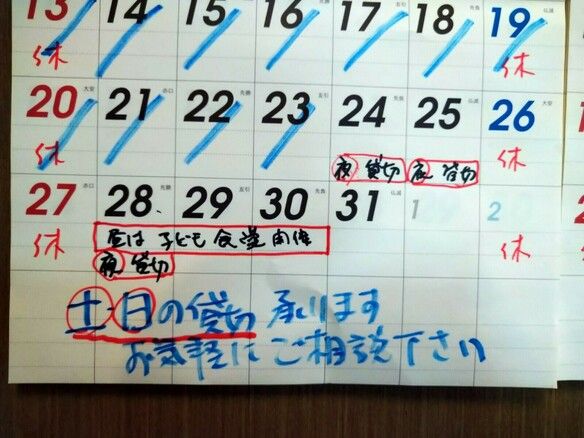 13 14 15 16 友引 17 先負 18 仏滅 19
休 休
20 大安 21 赤口 22 先勝 23 友引 24 先負 25 仏滅 26 大安
休 夜 貸切 夜 貸切 休
27 赤口 28 先勝 29 友引 30 先負 31 仏滅 1 2
休 昼は 子ども食堂 開催 休
夜 貸切
土・日の貸切 承ります
お気軽に ご相談下さい